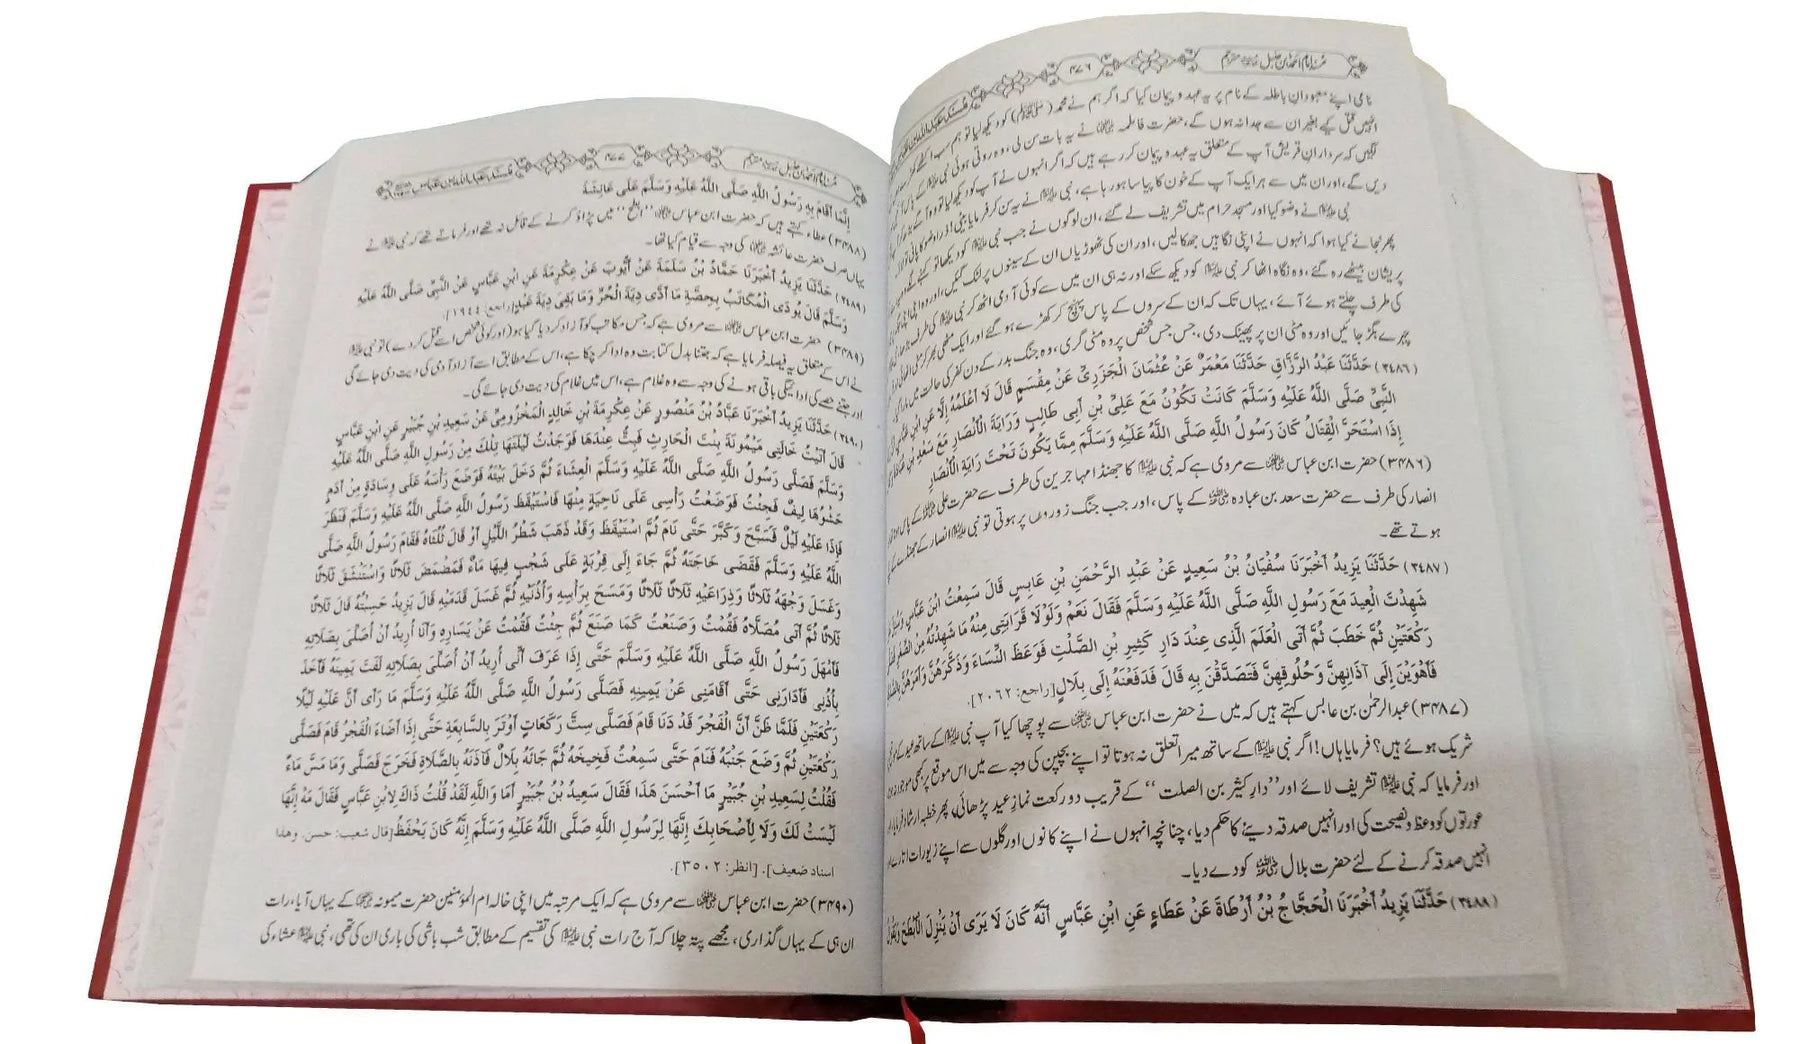 مسند امام احمد بن حنبل مترجم ۴۷۶ مسند عبداللہ بن عباس
نامی اپنے معبودانِ باطلہ کے نام پر یہ عہد و پیمان کیا کہ اگر ہم نے محمد (ﷺ) کو دیکھ لیا تو ہم سب اکٹھے
انہیں قتل کیے بغیر ان سے جدا نہ ہوں گے، حضرت فاطمہ ؓ نے یہ بات سن لی، وہ روتی ہوئی نبی علیہ السلام کے پاس
لگیں کہ سردارانِ قریش آپ کے متعلق یہ عہد و پیمان کر رہے ہیں کہ اگر انہوں نے آپ کو دیکھ لیا تو وہ آگے بڑھ کر
دیں گے، اور ان میں سے ہر ایک آپ کے خون کا پیاسا ہو رہا ہے، نبی علیہ السلام نے یہ سن کر فرمایا بیٹی! ذرا وضو کا پانی تو
نبی علیہ السلام نے وضو کیا اور مسجد حرام میں تشریف لے گئے، ان لوگوں نے جب نبی علیہ السلام کو دیکھا تو کہنے لگے
پھر نجانے کیا ہوا کہ انہوں نے اپنی نگاہیں جھکا لیں، اور ان کی ٹھوڑیاں ان کے سینوں پر لٹک گئیں، اور وہ اپنی
پریشان بیٹھے رہ گئے، وہ نگاہ اٹھا کر نبی علیہ السلام کو دیکھ سکے اور نہ ہی ان میں سے کوئی آدمی اٹھ کر نبی علیہ السلام کی طرف
کی طرف چلتے ہوئے آئے، یہاں تک کہ ان کے سروں کے پاس پہنچ کر کھڑے ہو گئے اور ایک مٹھی بھر کر مٹی اٹھائی
چہرے بگڑ جائیں اور وہ مٹی ان پر پھینک دی، جس جس شخص پر وہ مٹی گری، وہ جنگ بدر کے دن کفر کی حالت میں مارا گیا
(۳٤۸٦) حَدَّثَنَا عَبْدُ الرَّزَّاقِ حَدَّثَنَا مَعْمَرٌ عَنْ عُثْمَانَ الْجَزَرِيِّ عَنْ مِقْسَمٍ قَالَ لَا أَعْلَمُهُ إِلَّا عَنِ ابْنِ عَبَّاسٍ
النَّبِيِّ صَلَّى اللَّهُ عَلَيْهِ وَسَلَّمَ كَانَتْ تَكُونُ مَعَ عَلِيِّ بْنِ أَبِي طَالِبٍ وَرَايَةَ الْأَنْصَارِ مَعَ سَعْدِ بْنِ
إِذَا اسْتَحَرَّ الْقِتَالُ كَانَ رَسُولُ اللَّهِ صَلَّى اللَّهُ عَلَيْهِ وَسَلَّمَ مِمَّا يَكُونُ تَحْتَ رَايَةِ الْأَنْصَارِ
(۳۴۸۶) حضرت ابن عباس ؓ سے مروی ہے کہ نبی علیہ السلام کا جھنڈا مہاجرین کی طرف سے حضرت علی ؓ کے پاس
انصار کی طرف سے حضرت سعد بن عبادہ ؓ کے پاس، اور جب جنگ زوروں پر ہوتی تو نبی علیہ السلام انصار کے جھنڈے کے
ہوتے تھے۔
(۳٤۸۷) حَدَّثَنَا يَزِيدُ أَخْبَرَنَا سُفْيَانُ بْنُ سَعِيدٍ عَنْ عَبْدِ الرَّحْمَنِ بْنِ عَابِسٍ قَالَ سَمِعْتُ ابْنَ عَبَّاسٍ
شَهِدْتَ الْعِيدَ مَعَ رَسُولِ اللَّهِ صَلَّى اللَّهُ عَلَيْهِ وَسَلَّمَ فَقَالَ نَعَمْ وَلَوْلَا قَرَابَتِي مِنْهُ مَا شَهِدْتُهُ مِنْ الصِّغَرِ
رَكْعَتَيْنِ ثُمَّ خَطَبَ ثُمَّ أَتَى الْعَلَمَ الَّذِي عِنْدَ دَارِ كَثِيرِ بْنِ الصَّلْتِ فَوَعَظَ النِّسَاءَ وَذَكَّرَهُنَّ وَأَمَرَهُنَّ
فَأَهْوَيْنَ إِلَى آذَانِهِنَّ وَحُلُوقِهِنَّ فَتَصَدَّقْنَ بِهِ قَالَ فَدَفَعْنَهُ إِلَى بِلَالٍ [راجع: ٢٠٦٢].
(۳۴۸۷) عبدالرحمٰن بن عابس کہتے ہیں کہ میں نے حضرت ابن عباس ؓ سے پوچھا کیا آپ نبی علیہ السلام کے ساتھ عید کے موقع
شریک ہوئے ہیں؟ فرمایا ہاں! اگر نبی علیہ السلام کے ساتھ میرا تعلق نہ ہوتا تو اپنے بچپن کی وجہ سے میں اس موقع پر کبھی موجود نہ
اور فرمایا کہ نبی علیہ السلام تشریف لائے اور "دارِ کثیر بن الصلت" کے قریب دو رکعت نمازِ عید پڑھائی، پھر خطبہ ارشاد فرمایا اور
عورتوں کو وعظ و نصیحت کی اور انہیں صدقہ دینے کا حکم دیا، چنانچہ انہوں نے اپنے کانوں اور گلوں سے اپنے زیورات اتارے اور
انہیں صدقہ کرنے کے لئے حضرت بلال ؓ کو دے دیا۔
(۳٤۸۸) حَدَّثَنَا يَزِيدُ أَخْبَرَنَا الْحَجَّاجُ بْنُ أَرْطَاةَ عَنْ عَطَاءٍ عَنِ ابْنِ عَبَّاسٍ أَنَّهُ كَانَ لَا يَرَى أَنْ يَنْزِلَ الْأَبْطَحَ وَيَقُولُ
مسند امام احمد بن حنبل مترجم ۴۷۷ مسند عبداللہ بن عباس
إِنَّمَا أَقَامَ بِهِ رَسُولُ اللَّهِ صَلَّى اللَّهُ عَلَيْهِ وَسَلَّمَ عَلَى عَائِشَةَ
(۳۴۸۸) عطاء کہتے ہیں کہ حضرت ابن عباس ؓ "ابطح" میں پڑاؤ کرنے کے قائل نہ تھے اور فرماتے تھے کہ نبی علیہ السلام نے
یہاں صرف حضرت عائشہ ؓ کی وجہ سے قیام کیا تھا۔
(۳٤۸۹) حَدَّثَنَا يَزِيدُ أَخْبَرَنَا حَمَّادُ بْنُ سَلَمَةَ عَنْ أَيُّوبَ عَنْ عِكْرِمَةَ عَنِ ابْنِ عَبَّاسٍ عَنْ النَّبِيِّ صَلَّى اللَّهُ عَلَيْهِ
وَسَلَّمَ قَالَ يُودَى الْمُكَاتَبُ بِحِصَّةِ مَا أَدَّى دِيَةَ الْحُرِّ وَمَا بَقِيَ دِيَةَ عَبْدٍ [راجع: ١٩٤٤].
(۳۴۸۹) حضرت ابن عباس ؓ سے مروی ہے کہ جس مکاتب کو آزاد کر دیا گیا ہو (اور کوئی شخص اسے قتل کر دے) تو نبی علیہ السلام
نے اس کے متعلق یہ فیصلہ فرمایا ہے کہ جتنا بدل کتابت وہ ادا کر چکا ہے، اس کے مطابق اسے آزاد آدمی کی دیت دی جائے گی
اور جتنے حصے کی ادائیگی باقی ہونے کی وجہ سے وہ غلام ہے، اس میں غلام کی دیت دی جائے گی۔
(۳٤۹۰) حَدَّثَنَا يَزِيدُ أَخْبَرَنَا عَبَّادُ بْنُ مَنْصُورٍ عَنْ عِكْرِمَةَ بْنِ خَالِدٍ الْمَخْزُومِيِّ عَنْ سَعِيدِ بْنِ جُبَيْرٍ عَنِ ابْنِ عَبَّاسٍ
قَالَ أَتَيْتُ خَالَتِي مَيْمُونَةَ بِنْتَ الْحَارِثِ فَبِتُّ عِنْدَهَا فَوَجَدْتُ لَيْلَتَهَا تِلْكَ مِنْ رَسُولِ اللَّهِ صَلَّى اللَّهُ عَلَيْهِ
وَسَلَّمَ فَصَلَّى رَسُولُ اللَّهِ صَلَّى اللَّهُ عَلَيْهِ وَسَلَّمَ الْعِشَاءَ ثُمَّ دَخَلَ بَيْتَهُ فَوَضَعَ رَأْسَهُ عَلَى وِسَادَةٍ مِنْ أَدَمٍ
حَشْوُهَا لِيفٌ فَجِئْتُ فَوَضَعْتُ رَأْسِي عَلَى نَاحِيَةٍ مِنْهَا فَاسْتَيْقَظَ رَسُولُ اللَّهِ صَلَّى اللَّهُ عَلَيْهِ وَسَلَّمَ فَنَظَرَ
فَإِذَا عَلَيْهِ لَيْلٌ فَسَبَّحَ وَكَبَّرَ حَتَّى نَامَ ثُمَّ اسْتَيْقَظَ وَقَدْ ذَهَبَ شَطْرُ اللَّيْلِ أَوْ قَالَ ثُلُثَاهُ فَقَامَ رَسُولُ اللَّهِ صَلَّى
اللَّهُ عَلَيْهِ وَسَلَّمَ فَقَضَى حَاجَتَهُ ثُمَّ جَاءَ إِلَى قِرْبَةٍ عَلَى شَجْبٍ فِيهَا مَاءٌ فَمَضْمَضَ ثَلَاثًا وَاسْتَنْشَقَ ثَلَاثًا
وَغَسَلَ وَجْهَهُ ثَلَاثًا وَذِرَاعَيْهِ ثَلَاثًا ثَلَاثًا وَمَسَحَ بِرَأْسِهِ وَأُذُنَيْهِ ثُمَّ غَسَلَ قَدَمَيْهِ قَالَ يَزِيدُ حَسِبْتُهُ قَالَ ثَلَاثًا
ثَلَاثًا ثُمَّ أَتَى مُصَلَّاهُ فَقُمْتُ وَصَنَعْتُ كَمَا صَنَعَ ثُمَّ جِئْتُ فَقُمْتُ عَنْ يَسَارِهِ وَأَنَا أُرِيدُ أَنْ أُصَلِّيَ بِصَلَاتِهِ
فَأَمْهَلَ رَسُولُ اللَّهِ صَلَّى اللَّهُ عَلَيْهِ وَسَلَّمَ حَتَّى إِذَا عَرَفَ أَنِّي أُرِيدُ أَنْ أُصَلِّيَ بِصَلَاتِهِ لَفَتَ يَمِينَهُ فَأَخَذَ
بِأُذُنِي فَأَدَارَنِي حَتَّى أَقَامَنِي عَنْ يَمِينِهِ فَصَلَّى رَسُولُ اللَّهِ صَلَّى اللَّهُ عَلَيْهِ وَسَلَّمَ مَا رَأَى أَنَّ عَلَيْهِ لَيْلًا
رَكْعَتَيْنِ فَلَمَّا ظَنَّ أَنَّ الْفَجْرَ قَدْ دَنَا قَامَ فَصَلَّى سِتَّ رَكَعَاتٍ أَوْتَرَ بِالسَّابِعَةِ حَتَّى إِذَا أَضَاءَ الْفَجْرُ قَامَ فَصَلَّى
رَكْعَتَيْنِ ثُمَّ وَضَعَ جَنْبَهُ فَنَامَ حَتَّى سَمِعْتُ فَخِيخَهُ ثُمَّ جَائَهُ بِلَالٌ فَآذَنَهُ بِالصَّلَاةِ فَخَرَجَ فَصَلَّى وَمَا مَسَّ مَاءً
فَقُلْتُ لِسَعِيدِ بْنِ جُبَيْرٍ مَا أَحْسَنَ هَذَا فَقَالَ سَعِيدُ بْنُ جُبَيْرٍ أَمَا وَاللَّهِ لَقَدْ قُلْتُ ذَاكَ لِابْنِ عَبَّاسٍ فَقَالَ مَهْ إِنَّهَا
لَيْسَتْ لَكَ وَلَا لِأَصْحَابِكَ إِنَّهَا لِرَسُولِ اللَّهِ صَلَّى اللَّهُ عَلَيْهِ وَسَلَّمَ إِنَّهُ كَانَ يَحْفَظُ [قال شعيب: حسن. وهذا
اسناد ضعيف]. [انظر: ٣٥٠٢].
(۳۴۹۰) حضرت ابن عباس ؓ سے مروی ہے کہ ایک مرتبہ میں اپنی خالہ ام المؤمنین حضرت میمونہ ؓ کے یہاں آیا، رات
ان ہی کے یہاں گذاری، مجھے پتہ چلا کہ آج رات نبی علیہ السلام کی تقسیم کے مطابق شب باشی کی باری ان کی تھی، نبی علیہ السلام عشاء کی